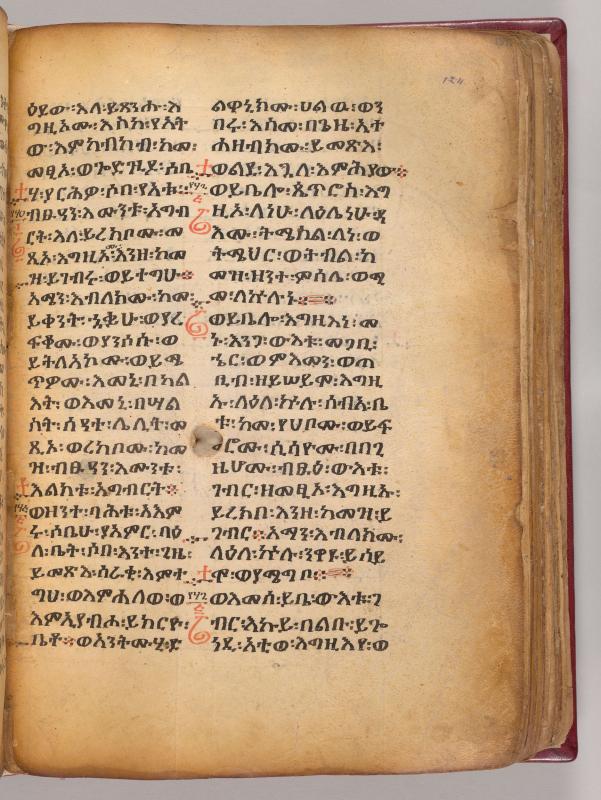 ዕደው፡እለ፡ይጸንሑ፡እ
ግዚኦሙ፡እስከ፡የአት
ው፡እምከብካብ፡ከመ፡
መጺኦ፡ወጐድጒዶ፡ሶቤ
ሃ፡ያርሕዎ፡ሶበ፡የአቱ፡
ብፁዓን፡እሙንቱ፡አግብ
ርት፡እለ፡ይረክቦሙ፡መ
ጺኦ፡እግዚኦሙ፡እንዘ፡ከመ
ዝ፡ይገብሩ፡ወይተግሁ።
አማን፡እብለክሙ፡ከመ
ይቀንት፡ሐቌሁ፡ወያረ
ፍቆሙ፡ወያንሶሱ፡ወ
ይትለአኮሙ፡ወይጼ
ጥዎሙ፡እመኒ፡በካል
እት፡ወእመኒ፡በሣል
ስት፡ሰዓተ፡ሌሊት፡መ
ጺኦ፡ወረከቦሙ፡ከመ
ዝ፡ብፁዓን፡እሙንቱ፡
እልክቱ፡አግብርት።
ወዘንተ፡ባሕቱ፡አእም
ሩ፡ሶቤሁ፡ያአምር፡ባዕ
ለ፡ቤት፡ሶበ፡አንተ፡ጊዜ፡
ይመጽእ፡ሰራቂ፡እምተ
ግህ፡ወእምሐለወ፡ወ
እምኢያብሐ፡ይክርዮ፡
ቤቶ።ወአንትሙሂ፡ድ
ልዋኒክሙ፡ሀልዉ፡ወን
በሩ፡እስመ፡በጊዜ፡ኢተ
ሐዘብክሙ፡ይመጽእ፡
ወልደ፡እጓለ፡እምሕያው።
ወይቤሎ፡ጴጥሮስ፡እግ
ዚኦ፡ለነሁ፡ለዕሌነሁ፡ዛ
እሙ፡ትሜስል፡ለነ፡ወ
ትሜህር፡ወትብል፡ከ
መዝ፡ዘንተ፡ምሳሌ፡ወሚ
መ፡ለኵሉኑ።
ወይቤሎ፡እግዚእነ፡መ
ኑ፡እንጋ፡ውእቱ፡መጋቢ፡
ኄር፡ወምእመን፡ወጠ
ቢብ፡ዘይሠይም፡እግዚ
ኡ፡ለዕለ፡ኵሉ፡ሰብአ፡ቤ
ቱ፡ከመ፡የሀቦሙ፡ወይፍ
ሮሙ፡ሲሳዮሙ፡በበጊ
ዜሆሙ፡ብፁዕ፡ውእቱ፡
ገብር፡ዘመጺኦ፡እግዚኡ፡
ይረክበ፡እንዘ፡ከመዝ፡ይ
ገብር።አማን፡እብለክሙ፡
ለዕለ፡ኵሉ፡ንዋዩ፡ይሰይ
ሞ፡ወያሜግቦ።
ወእመሰ፡ይቤ፡ውእቱ፡ገ
ብር፡እኩይ፡በልቡ፡ይጐ
ነዲ፡አቲወ፡እግዚእየ፡ወ